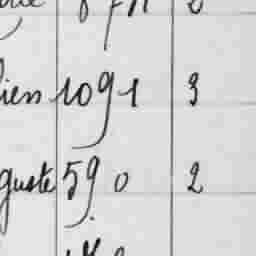 ien 1091 3
guste 590 2